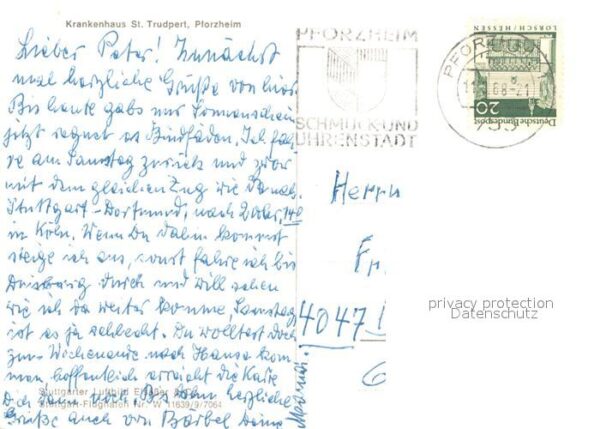 Krankenhaus St. Trudpert, Pforzheim
Lieber Peter! Zunächst
mal herzliche Grüße von hier.
Bis heute gabs nur Sonnenschein
jetzt regnet es Bindfäden. Ich fah-
re am Samstag zurück und zwar
mit dem gleichen Zug wie
Stuttgart-Dortmund, nach
in Köln. Wenn Du dahin kommst
steige ich aus, sonst fahre ich bis
Duisburg durch und will sehen
wie ich da weiter komme, Samstag
ist es ja schlecht. Du wolltest doch
zum Wochenende nach Hause kom-
men hoffentlich erreicht die Karte
Dich dann noch. Bis dahin herzliche
Grüße auch von Bärbel Deine
Stuttgarter Luftbild
Stuttgart-Flughafen Nr. W 11639/9/7064
PFORZHEIM
SCHMUCK UND
UHRENSTADT
PFORZHEIM
68-21
753
LORSCH/HESSEN
Deutsche Bundespost
20
Herrn
4047
privacy protection
Datenschutz